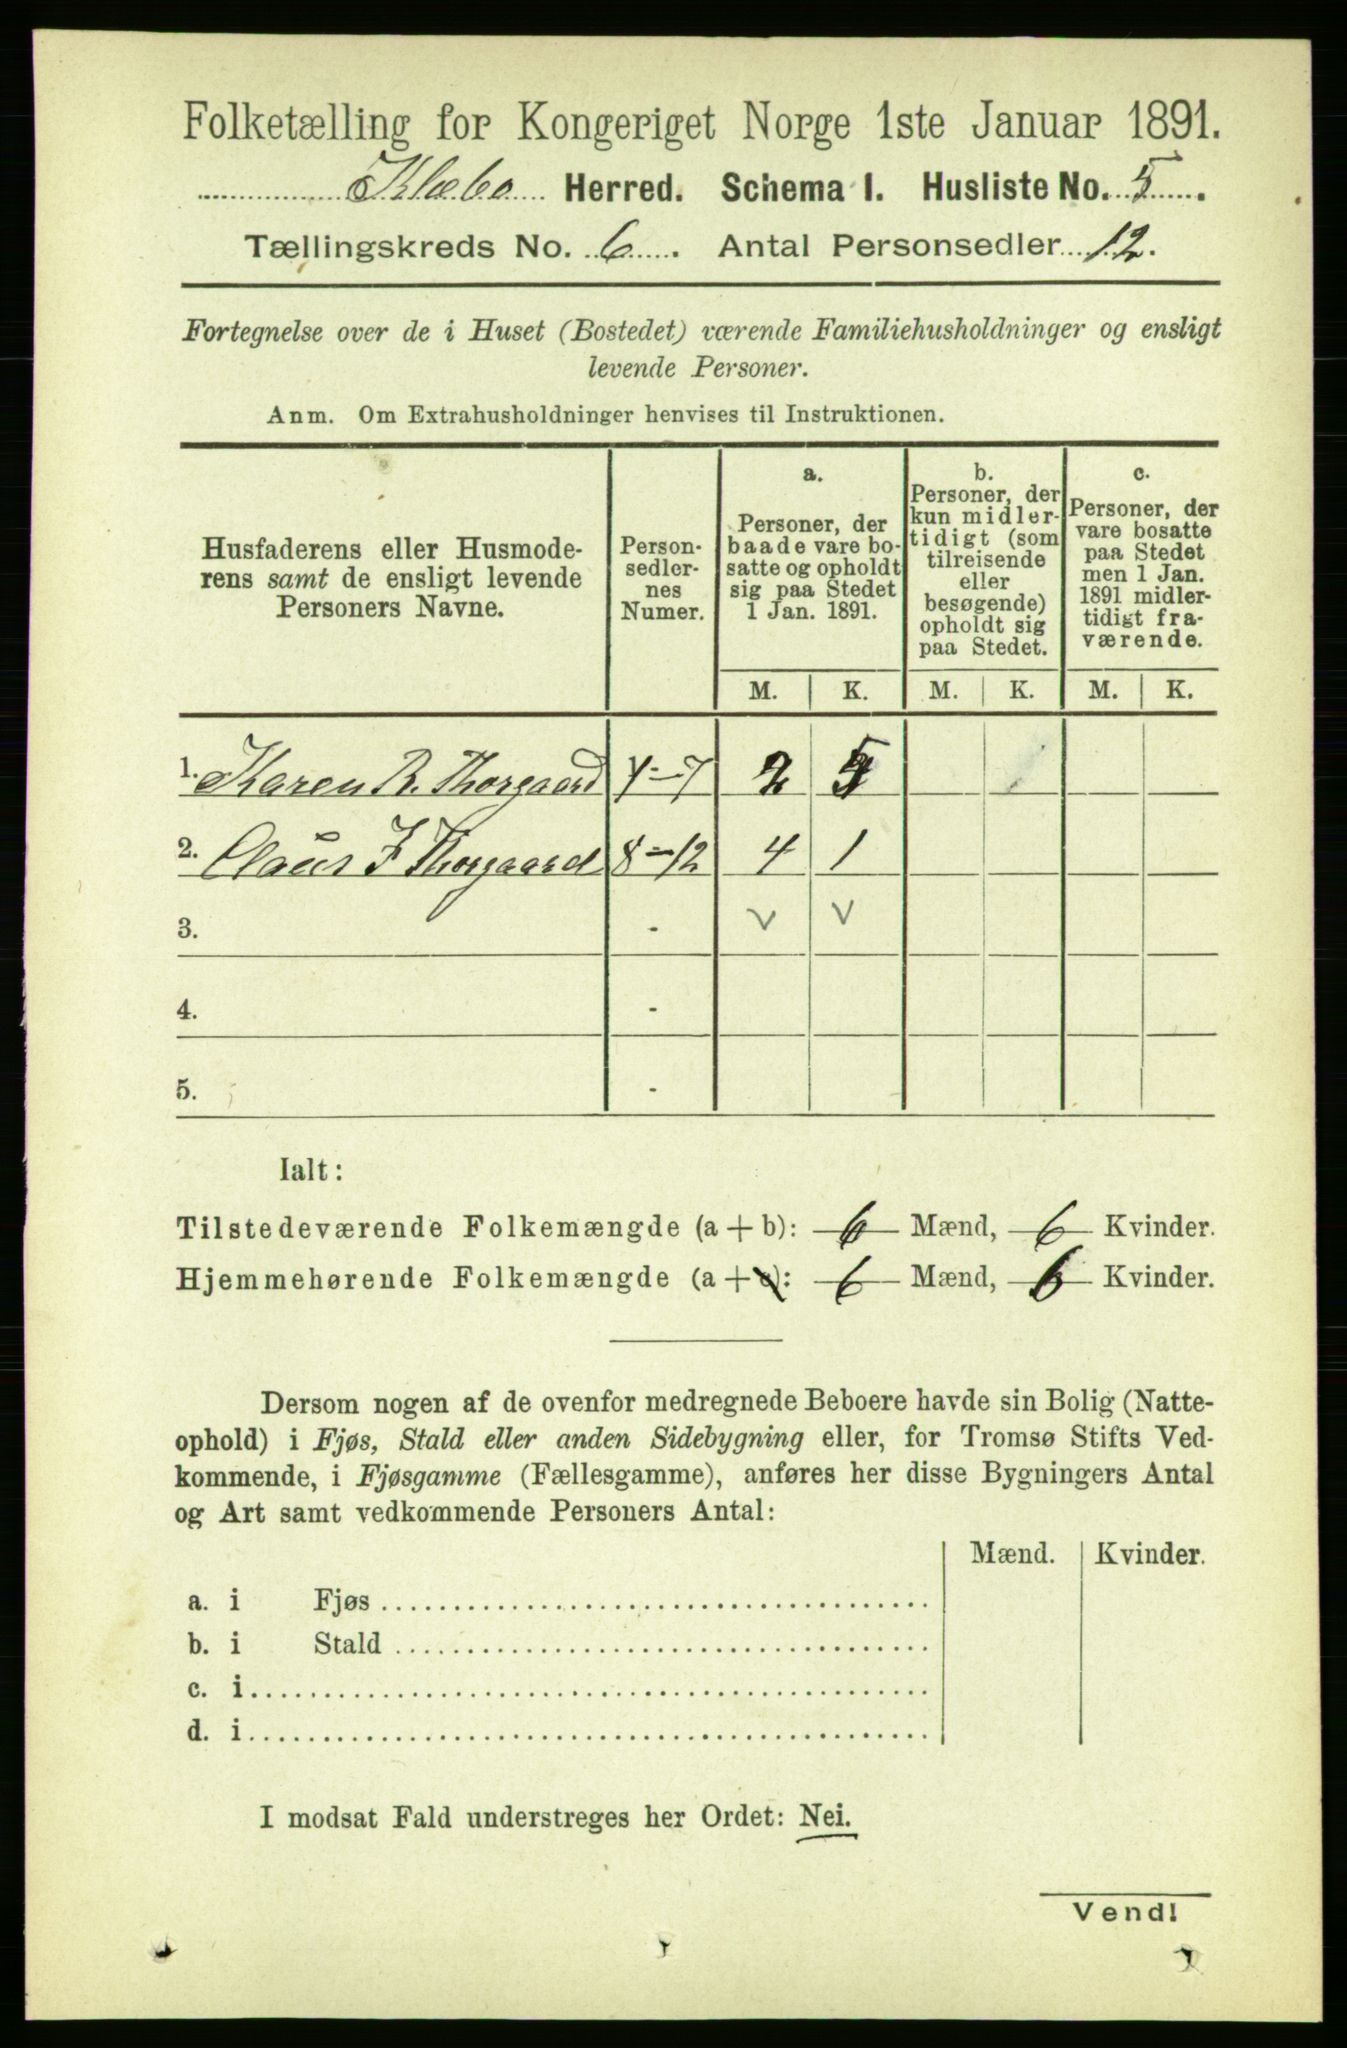 Folketælling for Kongeriget Norge 1ste Januar 1891.
Klæbo Herred. Schema I. Husliste No. 5.
Tællingskreds No. 6. Antal Personsedler 12.
Fortegnelse over de i Huset (Bostedet) værende Familiehusholdninger og ensligt
levende Personer.
Anm. Om Extrahusholdninger henvises til Instruktionen.
Husfaderens eller Husmode-
rens samt de ensligt levende
Personers Navne.
Person-
sedler-
nes
Numer.
a.
Personer, der
baade vare bo-
satte og opholdt
sig paa Stedet
1 Jan. 1891.
b.
Personer, der
kun midler-
tidigt (som
tilreisende
eller
besøgende)
opholdt sig
paa Stedet.
c.
Personer, der
vare bosatte
paa Stedet
men 1 Jan.
1891 midler-
tidigt fra-
værende.
M. K. M. K. M. K.
1. Karen R. Thorgaard 1-7 2 5
2. Claus J Thorgaard 8-12 4 1
3. - v v
4. -
5. -
Ialt:
Tilstedeværende Folkemængde (a + b): 6 Mænd, 6 Kvinder.
Hjemmehørende Folkemængde (a + c): 6 Mænd, 6 Kvinder.
Dersom nogen af de ovenfor medregnede Beboere havde sin Bolig (Natte-
ophold) i Fjøs, Stald eller anden Sidebygning eller, for Tromsø Stifts Ved-
kommende, i Fjøsgamme (Fællesgamme), anføres her disse Bygningers Antal
og Art samt vedkommende Personers Antal:
Mænd. Kvinder.
a. i Fjøs
b. i Stald
c. i
d. i
I modsat Fald understreges her Ordet: Nei.
Vend!